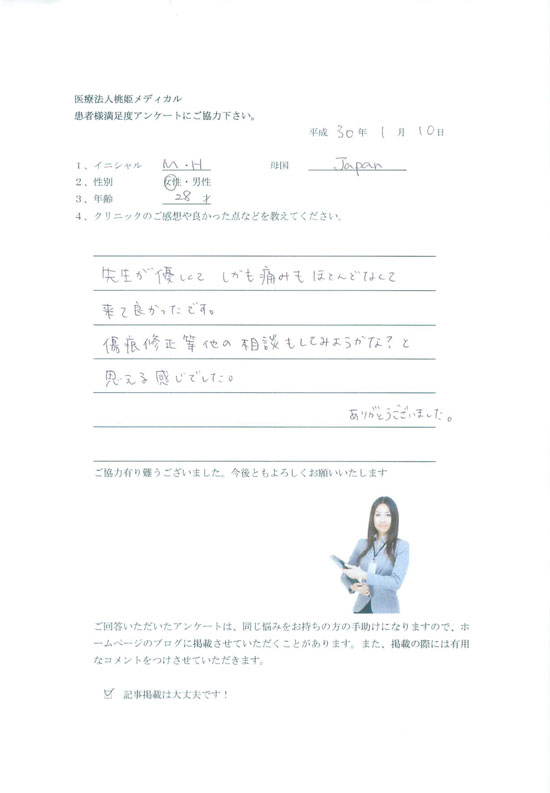 医療法人桃姫メディカル
患者様満足度アンケートにご協力下さい。
平成 30 年 1 月 10 日
1、イニシャル M・H 母国 Japan
2、性別 女性・男性
3、年齢 28 才
4、クリニックのご感想や良かった点などを教えてください。
先生が優しくて しかも痛みもほとんどなくて
来て良かったです。
傷痕修正等他の相談もしてみようかな?と
思える感じでした。
ありがとうございました。
ご協力有り難うございました。今後ともよろしくお願いいたします
ご回答いただいたアンケートは、同じ悩みをお持ちの方の手助けになりますので、ホ
ームページのブログに掲載させていただくことがあります。また、掲載の際には有用
なコメントをつけさせていただきます。
☑ 記事掲載は大丈夫です！